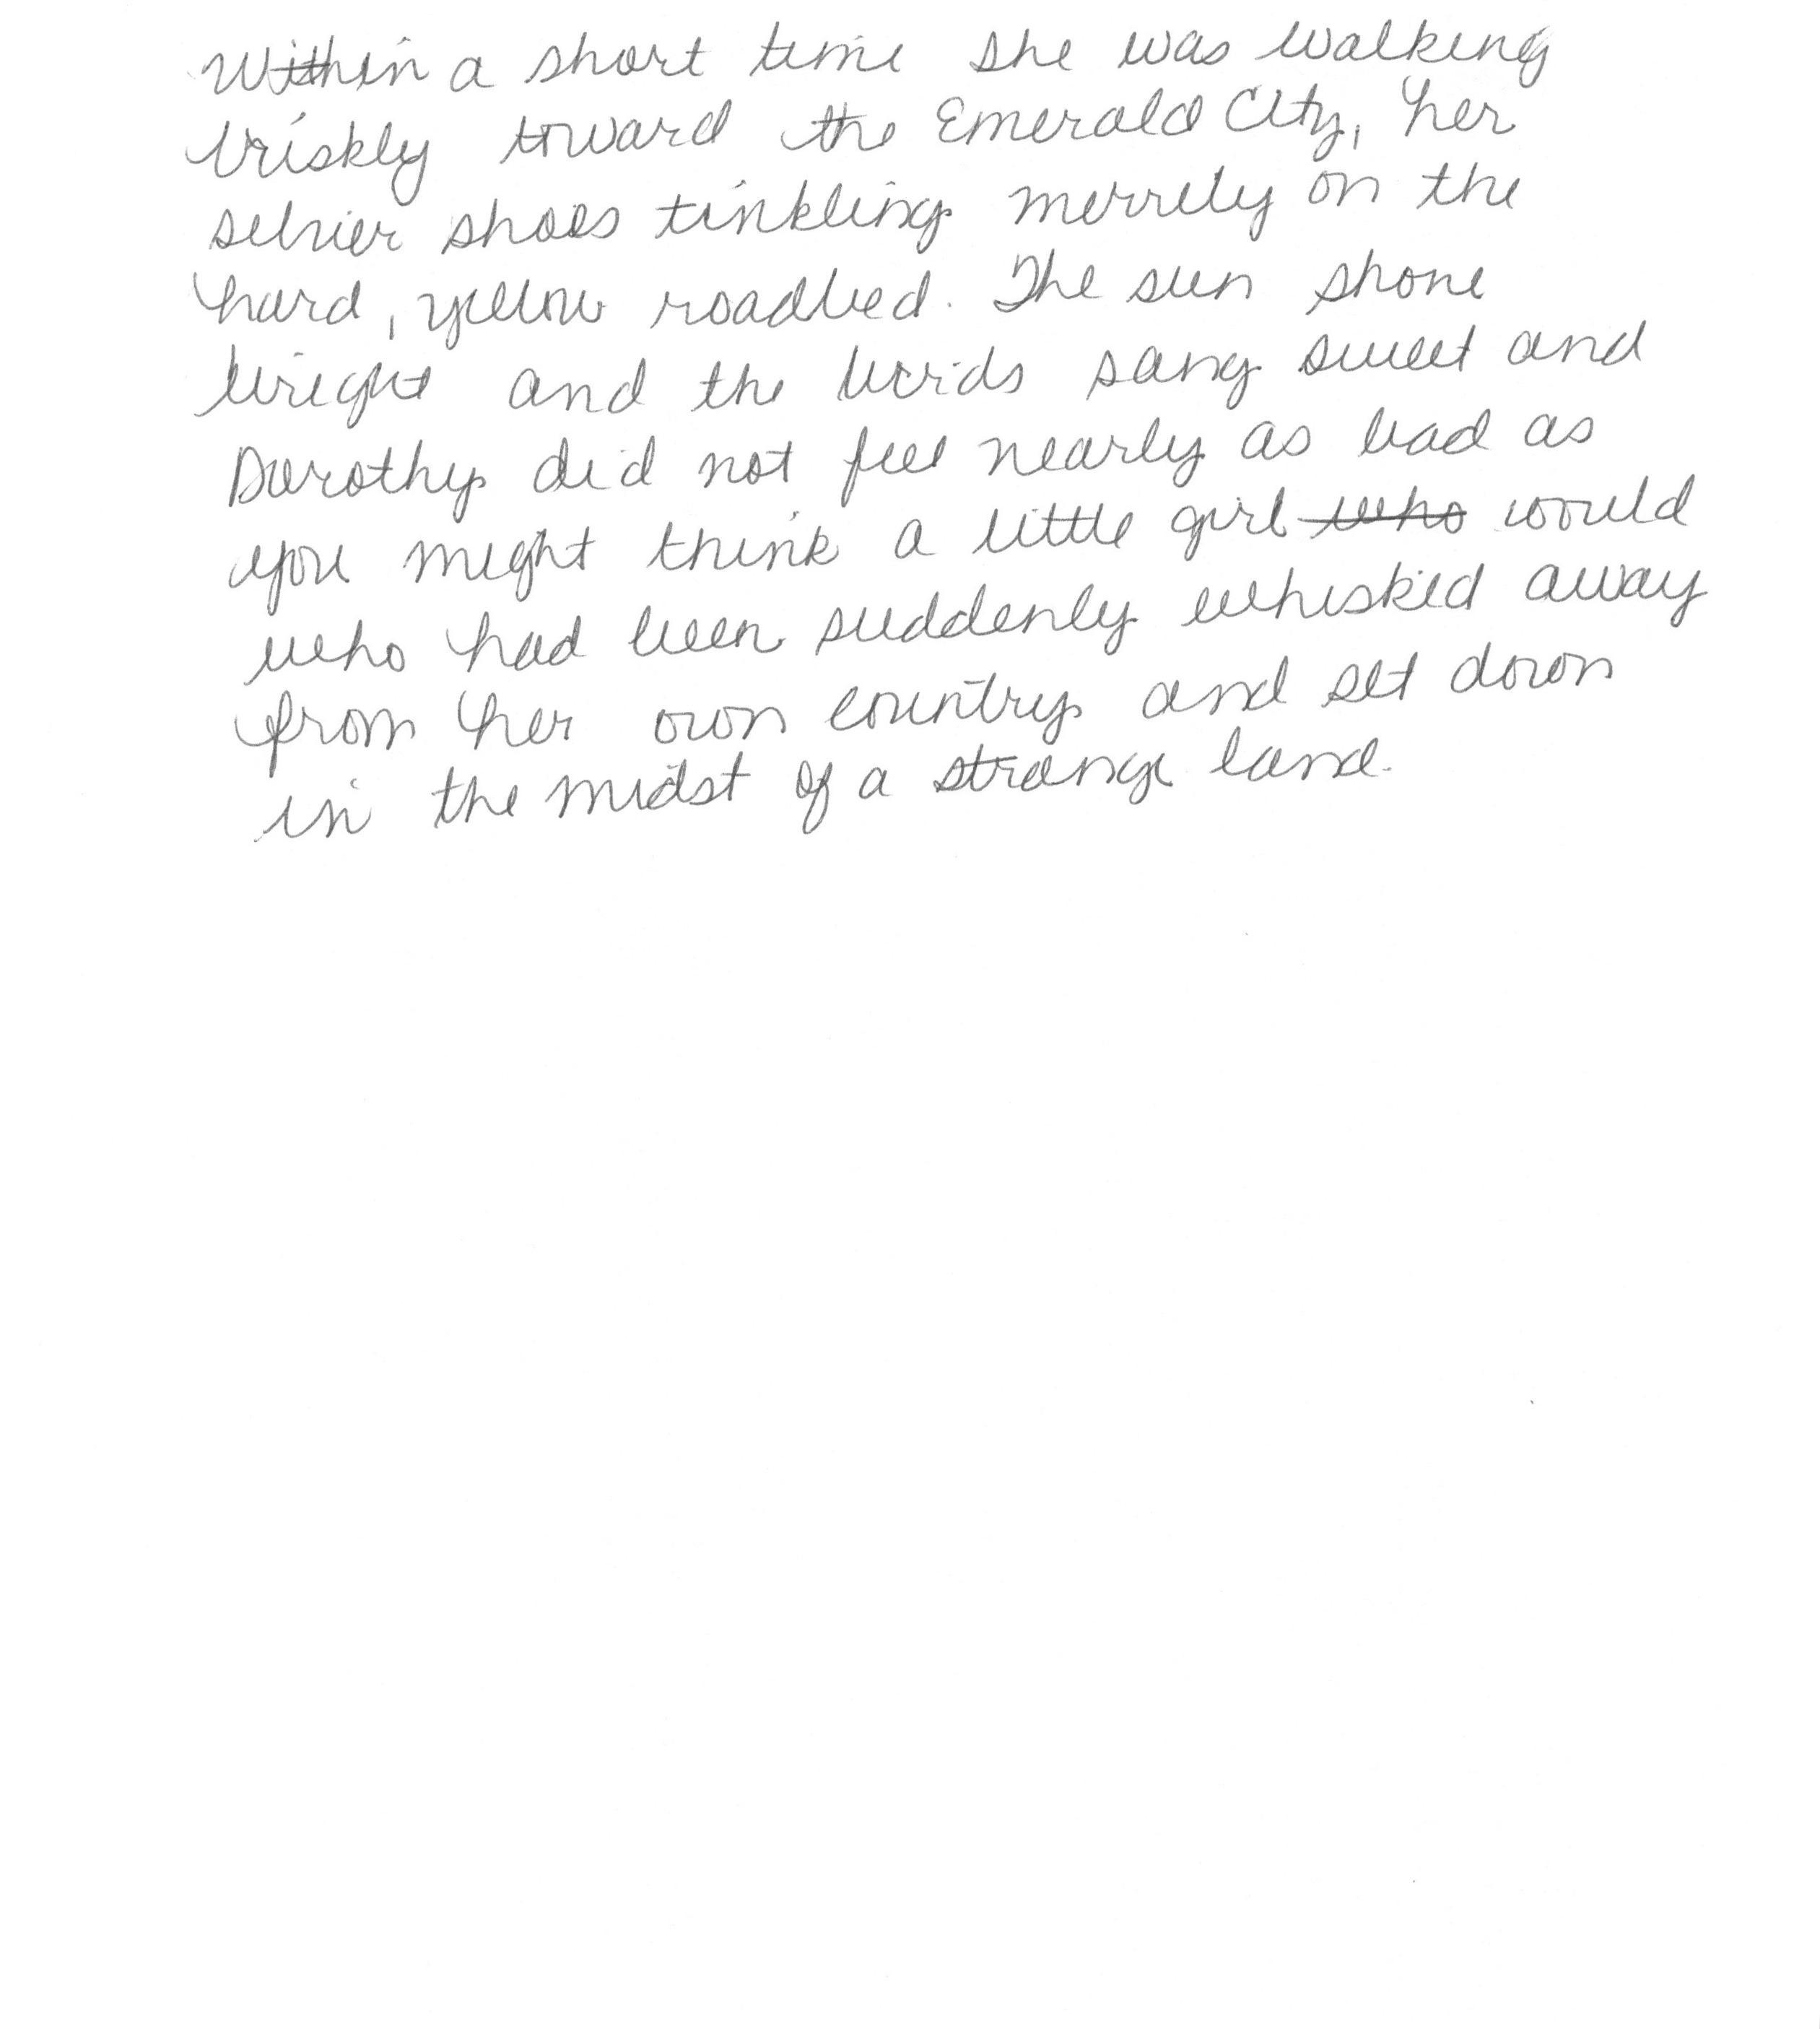 Within a short time she was walking
briskly toward the Emerald City, her
silver shoes tinkling merrily on the
hard, yellow roadbed. The sun shone
bright and the birds sang sweet and
Dorothy did not feel nearly as bad as
you might think a little girl ~~who~~ would
who had been suddenly whisked away
from her own country and set down
in the midst of a strange land.